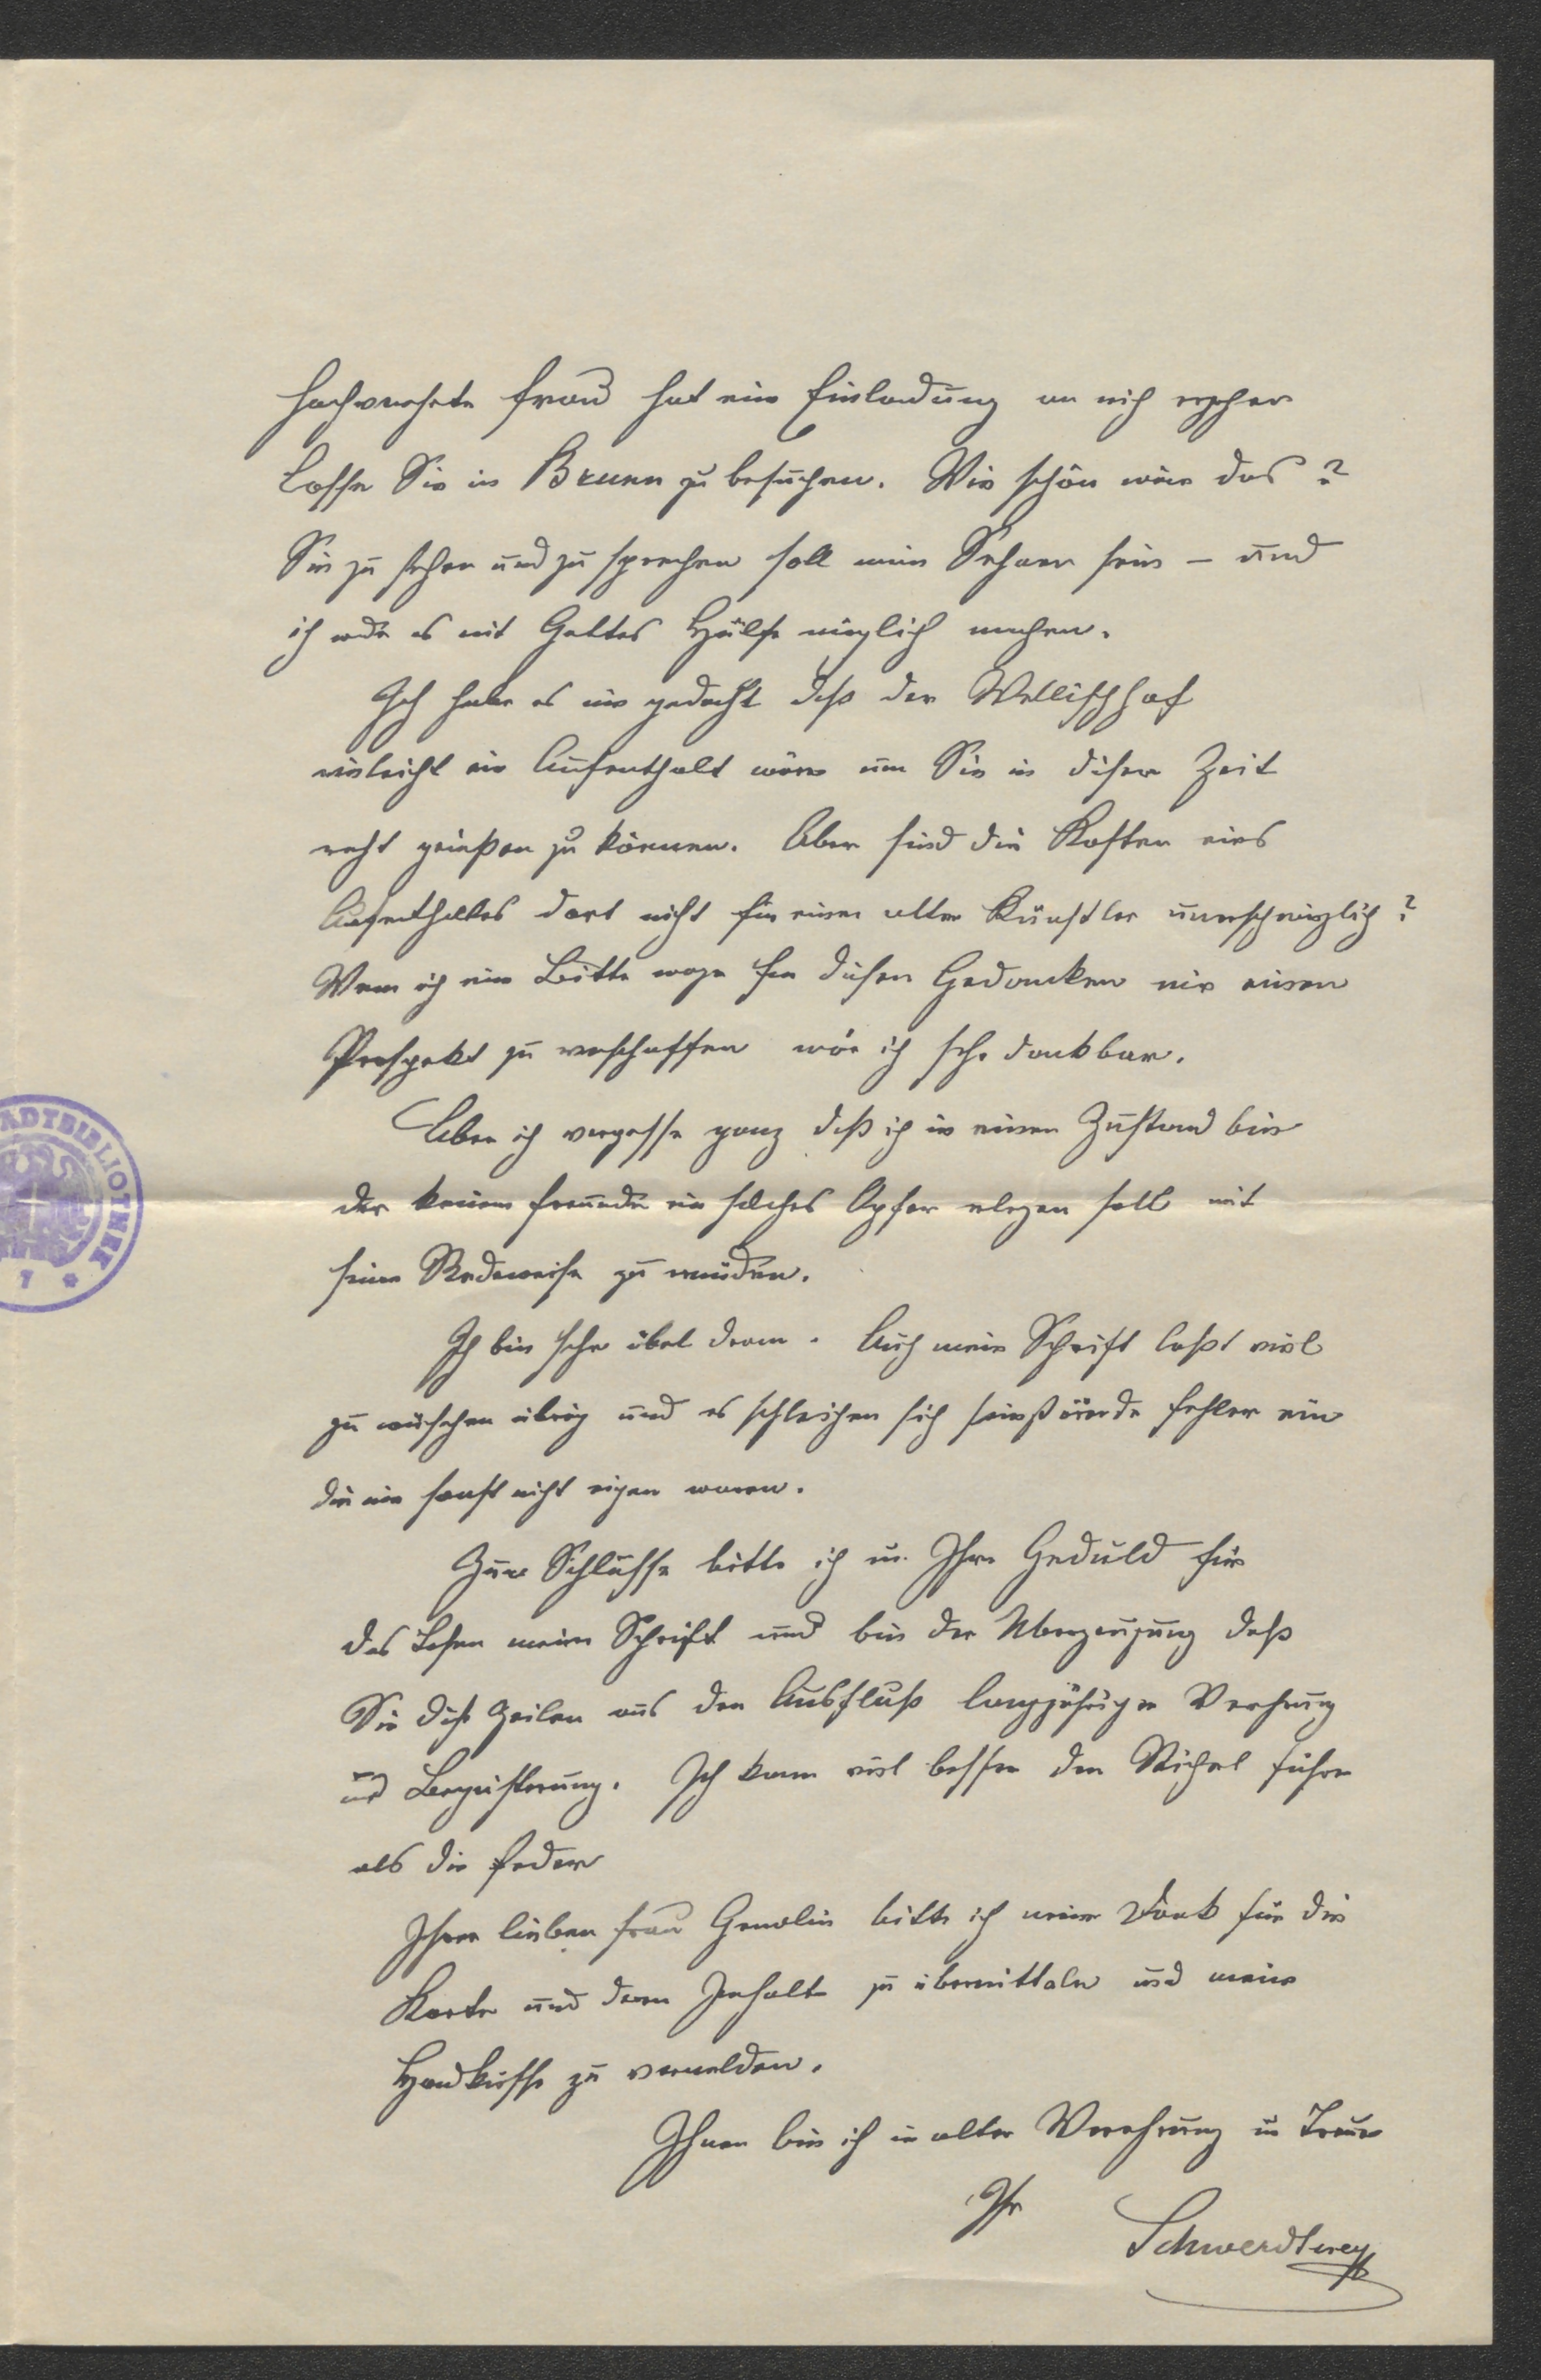 hochverehrte Frau hat eine Einladung an mich ergehen
lassen Sie in Brunn zu besuchen. Wie schön wäre das?
Sie zu sehen und zu sprechen soll mein Sehnen sein – und
ich werde es mit Gottes Hülfe möglich machen.
Ich habe es mir gedacht daß der Wellischhof
vieleicht ein Aufenthalt wäre um Sie in diser Zeit
recht genießen zu können. Aber sind die Kosten eines
Aufenthaltes dort nicht für einen alten Künstler unerschwinglich?
Wenn ich eine Bitte wage für diesen Gedancken mir einen
Prospekt zu verschaffen wäre ich sehr dankbar.
Aber ich vergesse ganz daß ich in einem Zustand bin
der keinem Freunde ein solches Opfer auferlegen soll mit
seiner Redeweise zu ermüden.
Ich bin sehr übel dran. Auch meine Schrift laßt viel
zu wünschen übrig und es schleichen sich Fehler ein
die mir sonst nicht eigen waren.
Zum Schlusse bitte ich um Ihre Geduld für
das Lesen meiner Schrift und bin der Überzeugung daß
Sie dise Zeilen als den Ausfluß langjähriger Verehrung
und Begeisterung. Ich kann viel besser den Stichel führen
als die Feder
Ihrer lieben Frau Gemalin bitte ich meinen Dank für die
Karte und deren Inhalt zu übermitteln und meine
Handküsse zu vermelden.
Ihnen bin ich in alter Verehrung u Treue
Ihr Schwerdtner
STADTBIBLIOTHEK